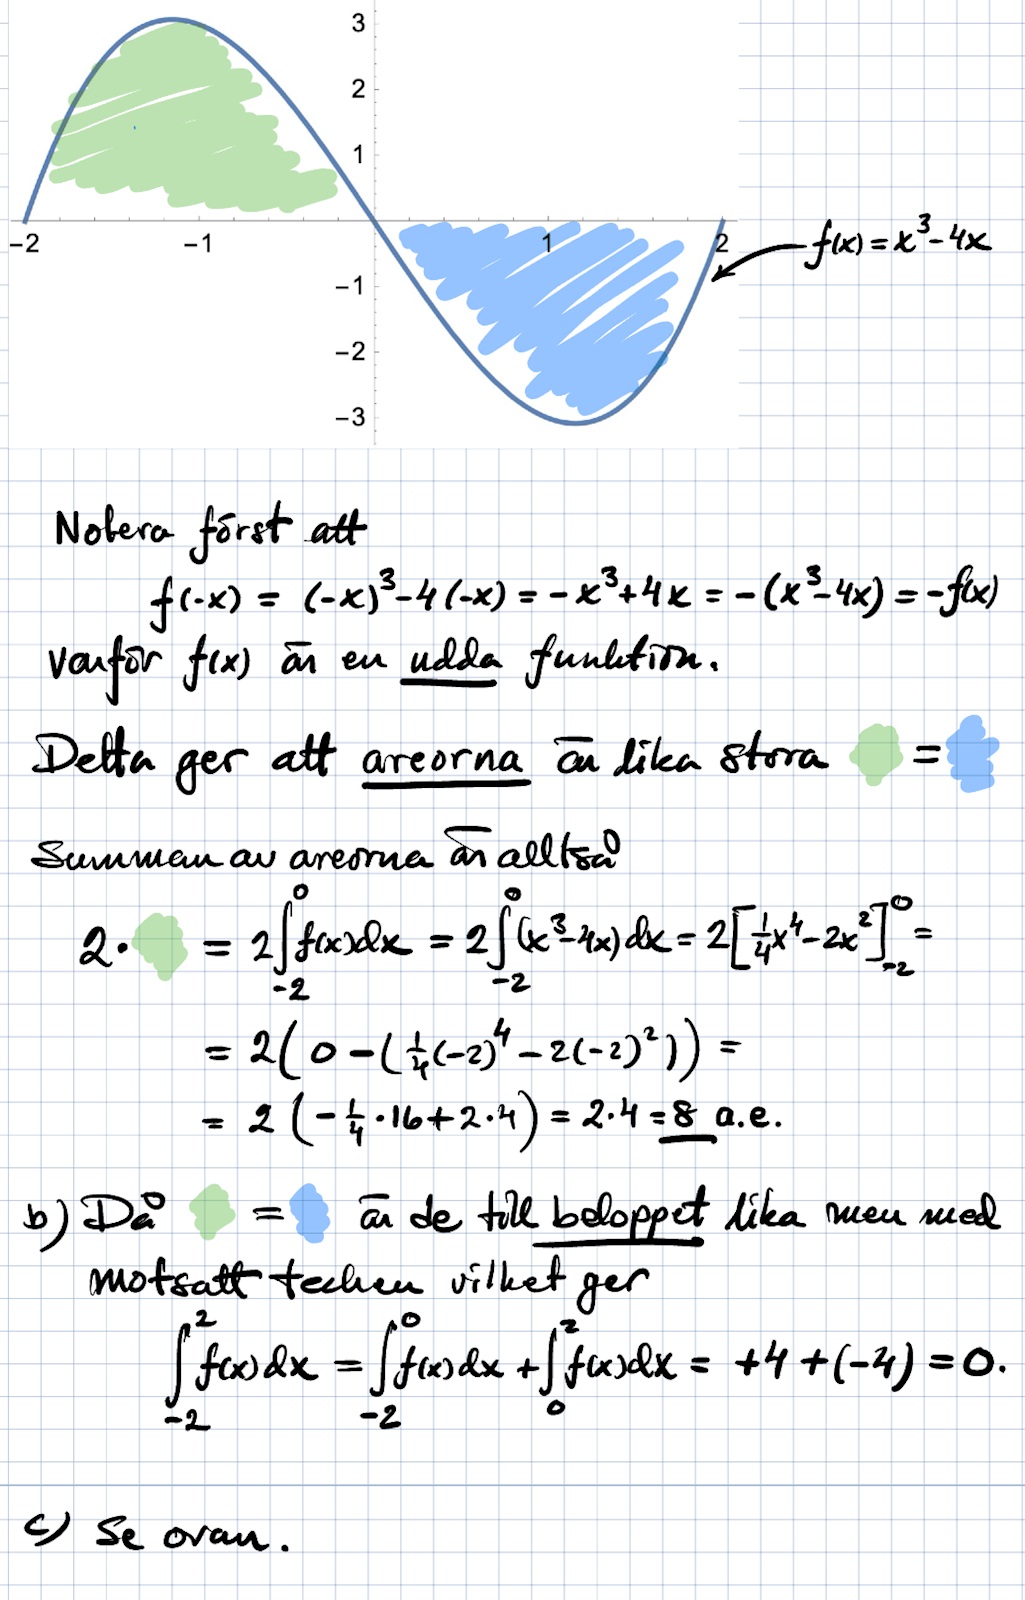 3
2
1
-2 -1 1 2
f(x) = x³-4x
-1
-2
-3
Notera först att
f(-x) = (-x)³-4(-x) = -x³+4x = -(x³-4x) = -f(x)
varför f(x) är en udda funktion.
Detta ger att areorna är lika stora =
Summan av areorna är alltså
2· = 2∫_{-2}^{0} f(x)dx = 2∫_{-2}^{0} (x³-4x)dx = 2[¼x⁴-2x²]_{-2}^{0} =
= 2(0-(¼(-2)⁴-2(-2)²)) =
= 2(-¼·16+2·4) = 2·4 = 8 a.e.
b) Då = är de till beloppet lika men med
motsatt tecken vilket ger
∫_{-2}^{2} f(x)dx = ∫_{-2}^{0} f(x)dx + ∫_{0}^{2} f(x)dx = +4+(-4) = 0.
c) Se ovan.